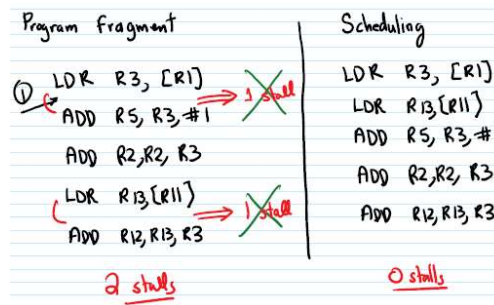 Program Fragment
① LDR R3, [R1]
ADD R5, R3, #1
1 stall
ADD R2, R2, R3
LDR R13, [R11]
ADD R12, R13, R3
1 stall
2 stalls
Scheduling
LDR R3, [R1]
LDR R13, [R11]
ADD R5, R3, #
ADD R2, R2, R3
ADD R12, R13, R3
0 stalls